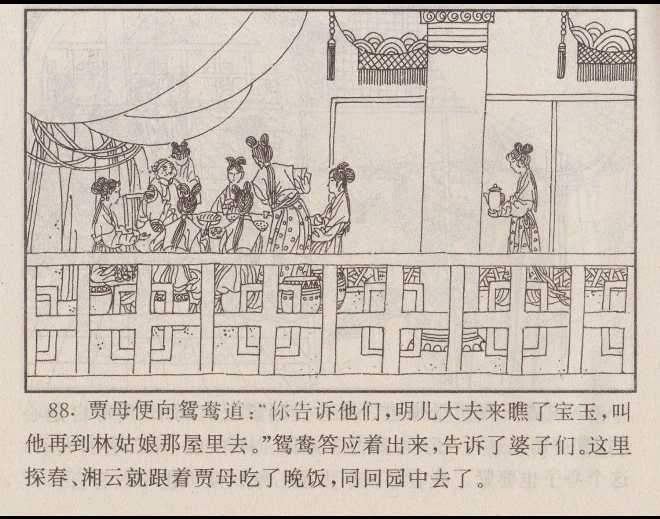 88. 贾母便向鸳鸯道:“你告诉他们,明儿大夫来瞧了宝玉,叫
他再到林姑娘那屋里去。”鸳鸯答应着出来,告诉了婆子们。这里
探春、湘云就跟着贾母吃了晚饭,同回园中去了。